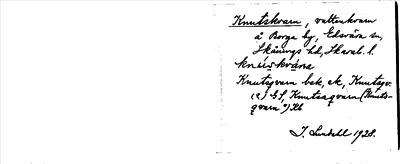 Knutskvarn, vattenkvarn
å Borga by, Edsvära sn,
Skånings hd, Skarab. l.
Knutsqvarn bek, ek, Knutsqv.
(2) Gs, Knutsaqvarn (Knuts-
qvarn
J. Lundahl 1928.